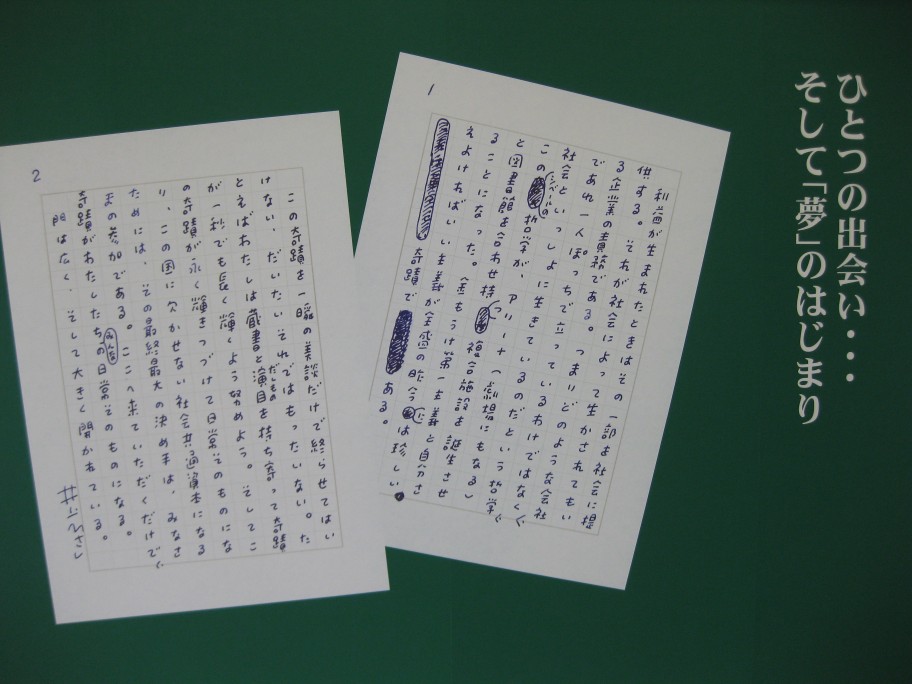 ひとつの出会い・・・
そして「夢」のはじまり
1
利益が生まれたときはその一部を社会に提
供する。それが社会によって生かされてもい
る企業の責務である。つまりどのような会社
であれ一人ぽっちで立っているわけではなく、
社会といっしょに生きているのだという哲学、
このシベールの哲学が、アリーナ(劇場にもなる)
と図書館を合わせ持つ複合施設を誕生させ
ることになった。金もうけ第一主義と自分さ
えよければいい主義が全盛の昨今には珍しい
奇蹟である。
2
この奇蹟を一瞬の美談だけで終らせてはい
けない、だいたいそれではもったいない。た
とえばわたしは蔵書と演目だしものを持ち寄って奇蹟
が一秒でも長く輝くよう努めよう。そしてこ
の奇蹟が永く輝きつづけて日常そのものにな
り、この国に欠かせない社会共通資本になる
ためには、その最終最大の決め手は、みなさ
まの参加である。ここへ来ていただくだけで、
奇蹟がわたしたちみんなの日常そのものになる。
門は広く、そして大きく開かれている。
井上ひさし